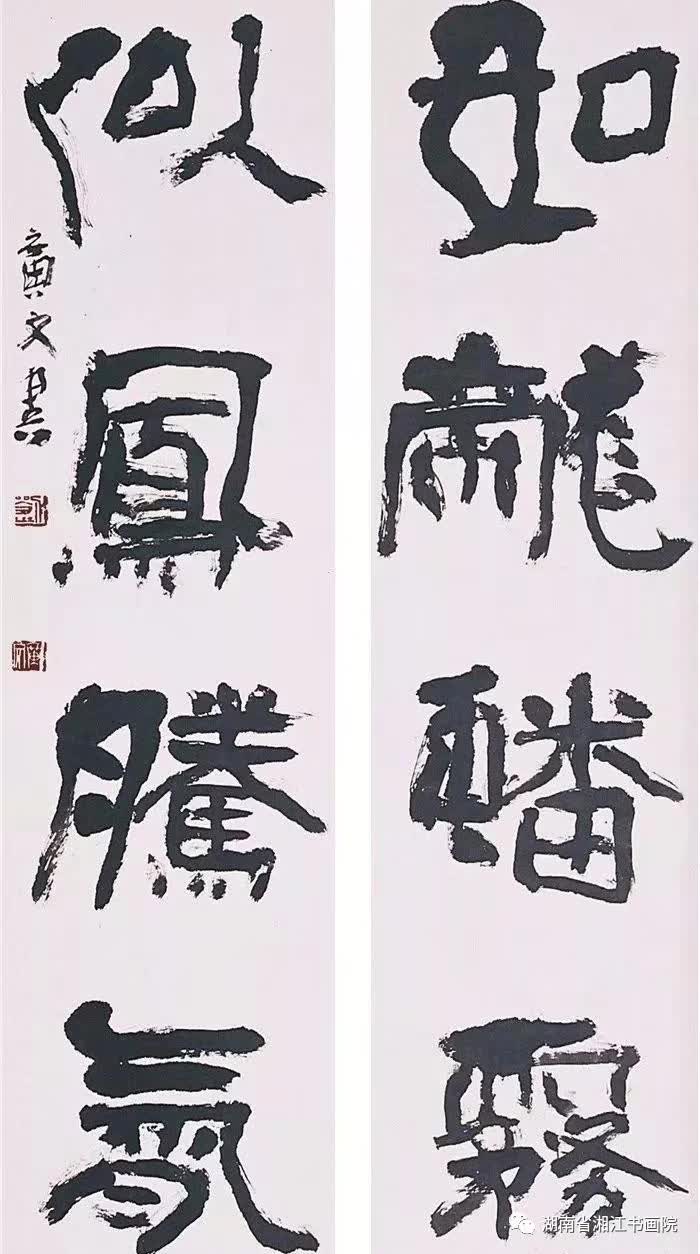 如龍蟠霧
似鳳騰氣
文書
湖南省湘江书画院